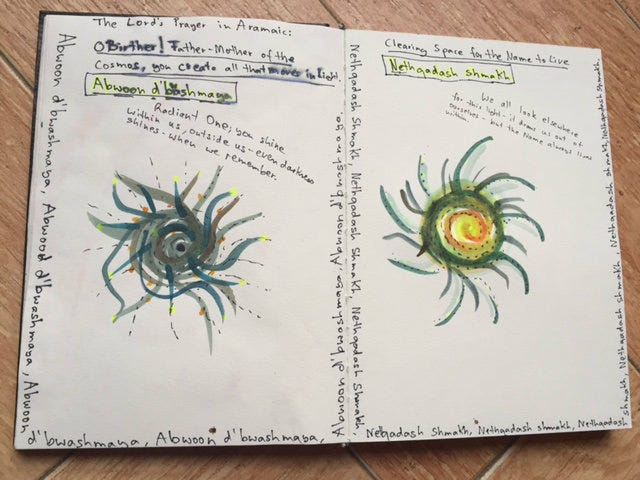 The Lord's Prayer in Aramaic:
O Birther! Father-Mother of the
Cosmos, you create all that moves in light.
Abwoon d'bwashmaya
Radiant One; you shine
within us, outside us - even darkness
shines - when we remember.
Abwoon d'bwashmaya, Abwood d'bwashmaya, Abwoon
d'bwashmaya, Abwoon d'bwashmaya,
Abwoon d'bwashmaya, Abwoon d'bwashmaya
Clearing Space for the Name to Live
Nethqadash shmakh
We all look elsewhere
for this light - it draws us out of
ourselves - but the Name always lives
within.
Nethqadash Shmakh, Nethqadash Shmakh, Nethqadash Shmakh, Nethqadash Shmakh,
Nethqadash shmakh, Nethqadash shmakh, Nethqadash
shmakh, Nethqadash shmakh, Nethqadash shmakh, Nethqadash shmakh,